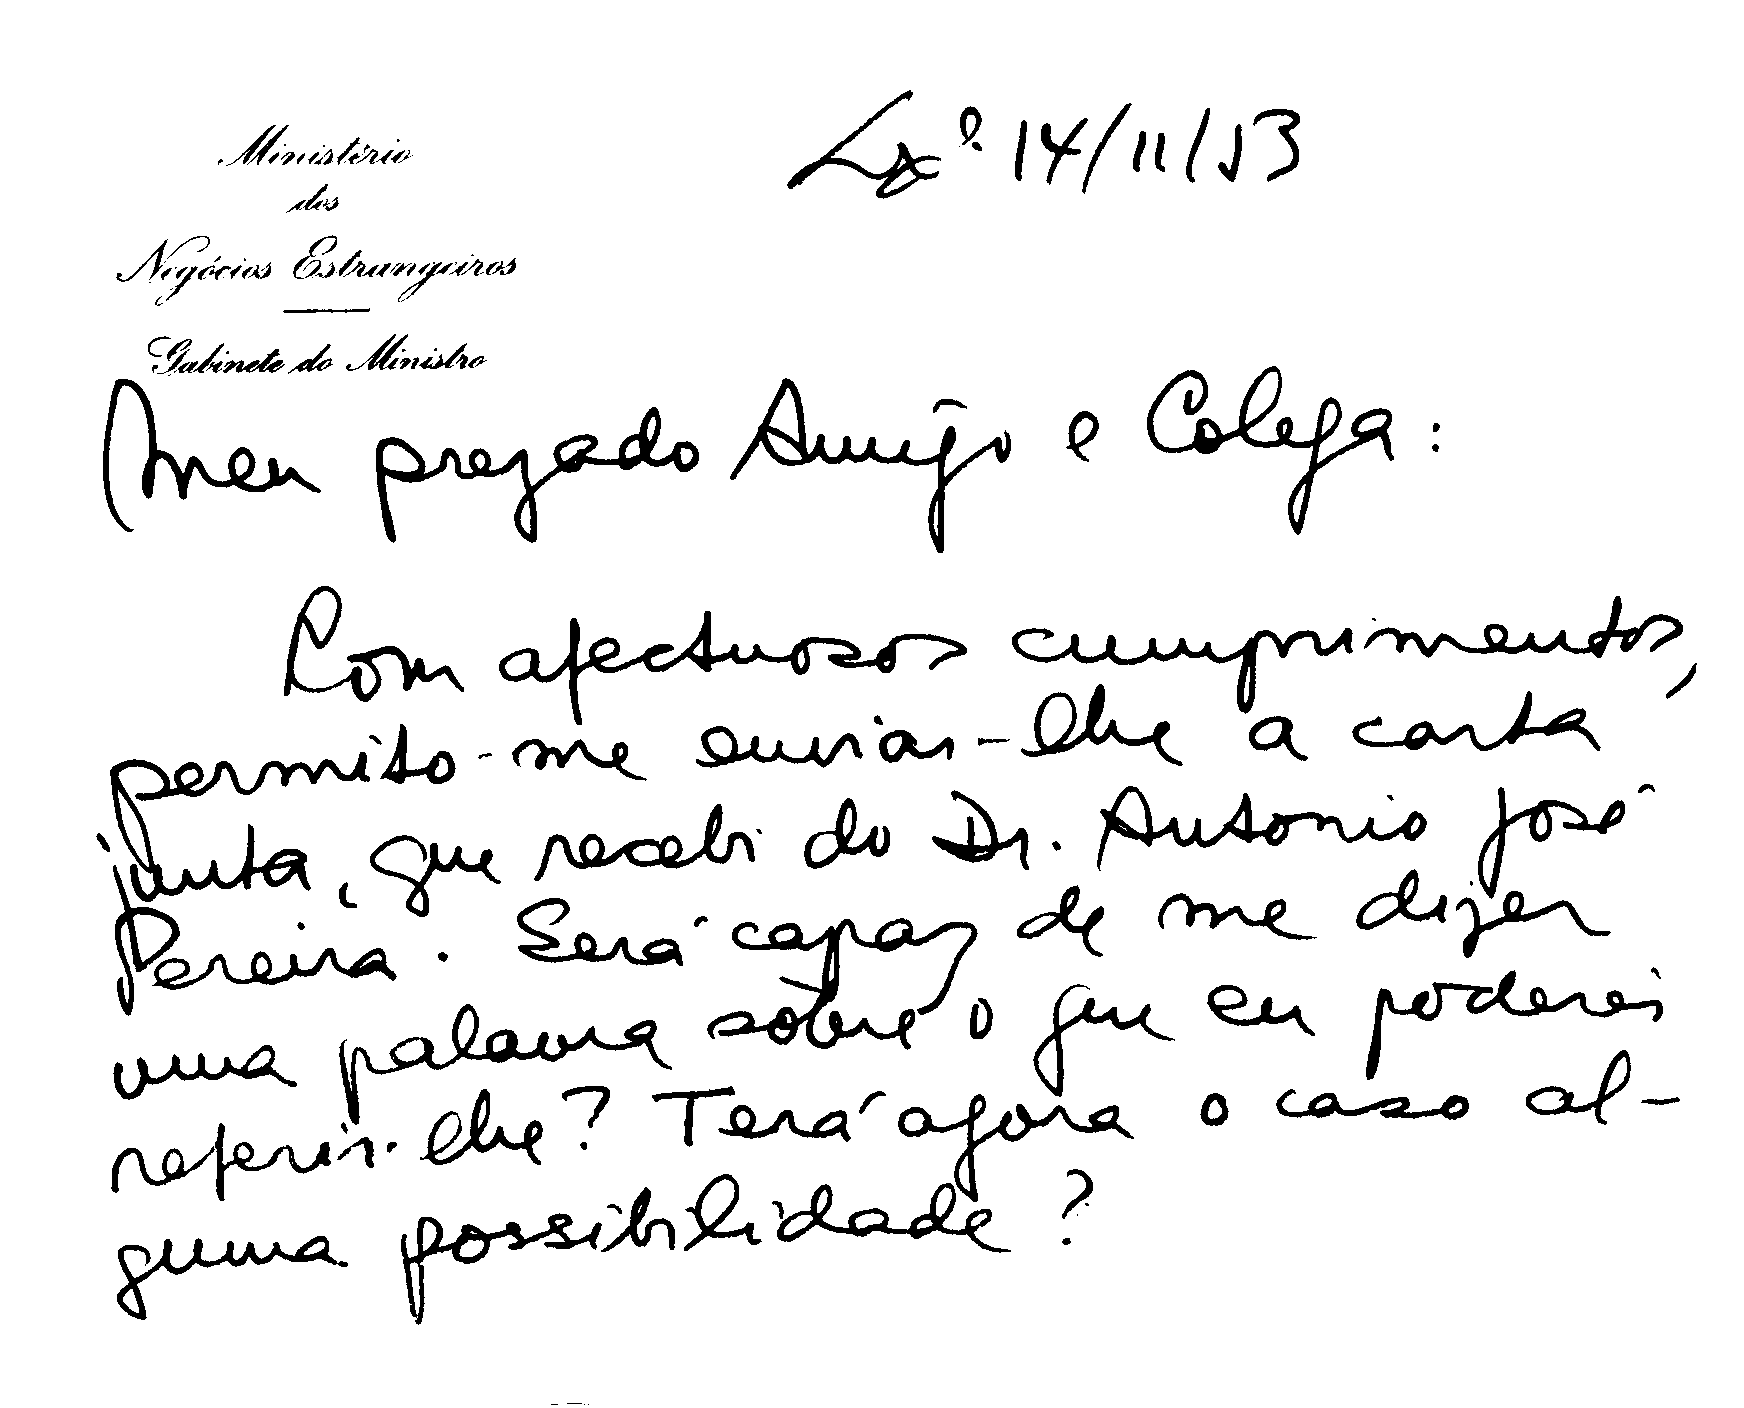 Ministério
dos
Negócios Estrangeiros
Gabinete do Ministro
Lxª. 14/11/53
Meu prezado Amigo e Colega:
Com afectuosos cumprimentos,
permito-me enviar-lhe a carta
junta, que recebi do Dr. Antonio José
Pereira. Será capaz de me dizer
uma palavra sôbre o que eu poderei
referir-lhe? Terá agora o caso al-
guma possibilidade?